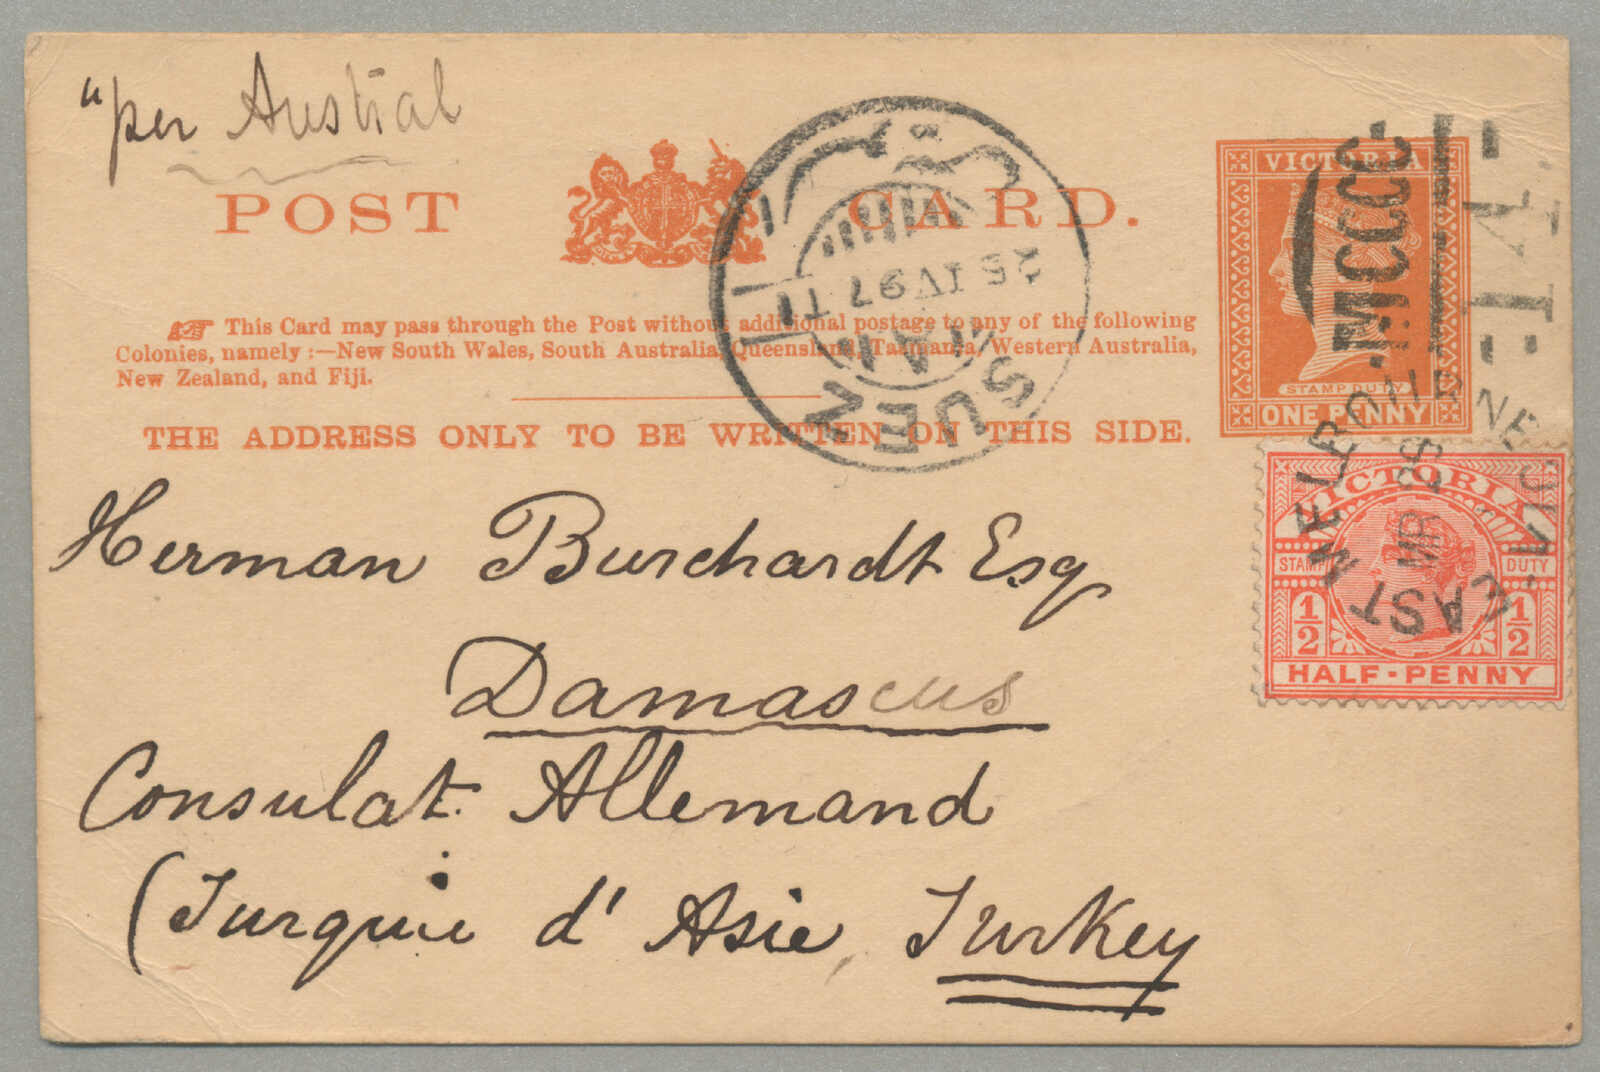 "per Austral
POST CARD.
This Card may pass through the Post without additional postage to any of the following
Colonies, namely :—New South Wales, South Australia, Queensland, Tasmania, Western Australia,
New Zealand, and Fiji.
THE ADDRESS ONLY TO BE WRITTEN ON THIS SIDE.
Herman Burchardt Esq
Damascus
Consulat Allemand
(Turquie d' Asie, Turkey
VICTORIA
STAMP DUTY
ONE PENNY
VICTORIA
STAMP DUTY
1/2 1/2
HALF-PENNY
IV 97 T
EAST MELBOURNE
MR 29
VIC